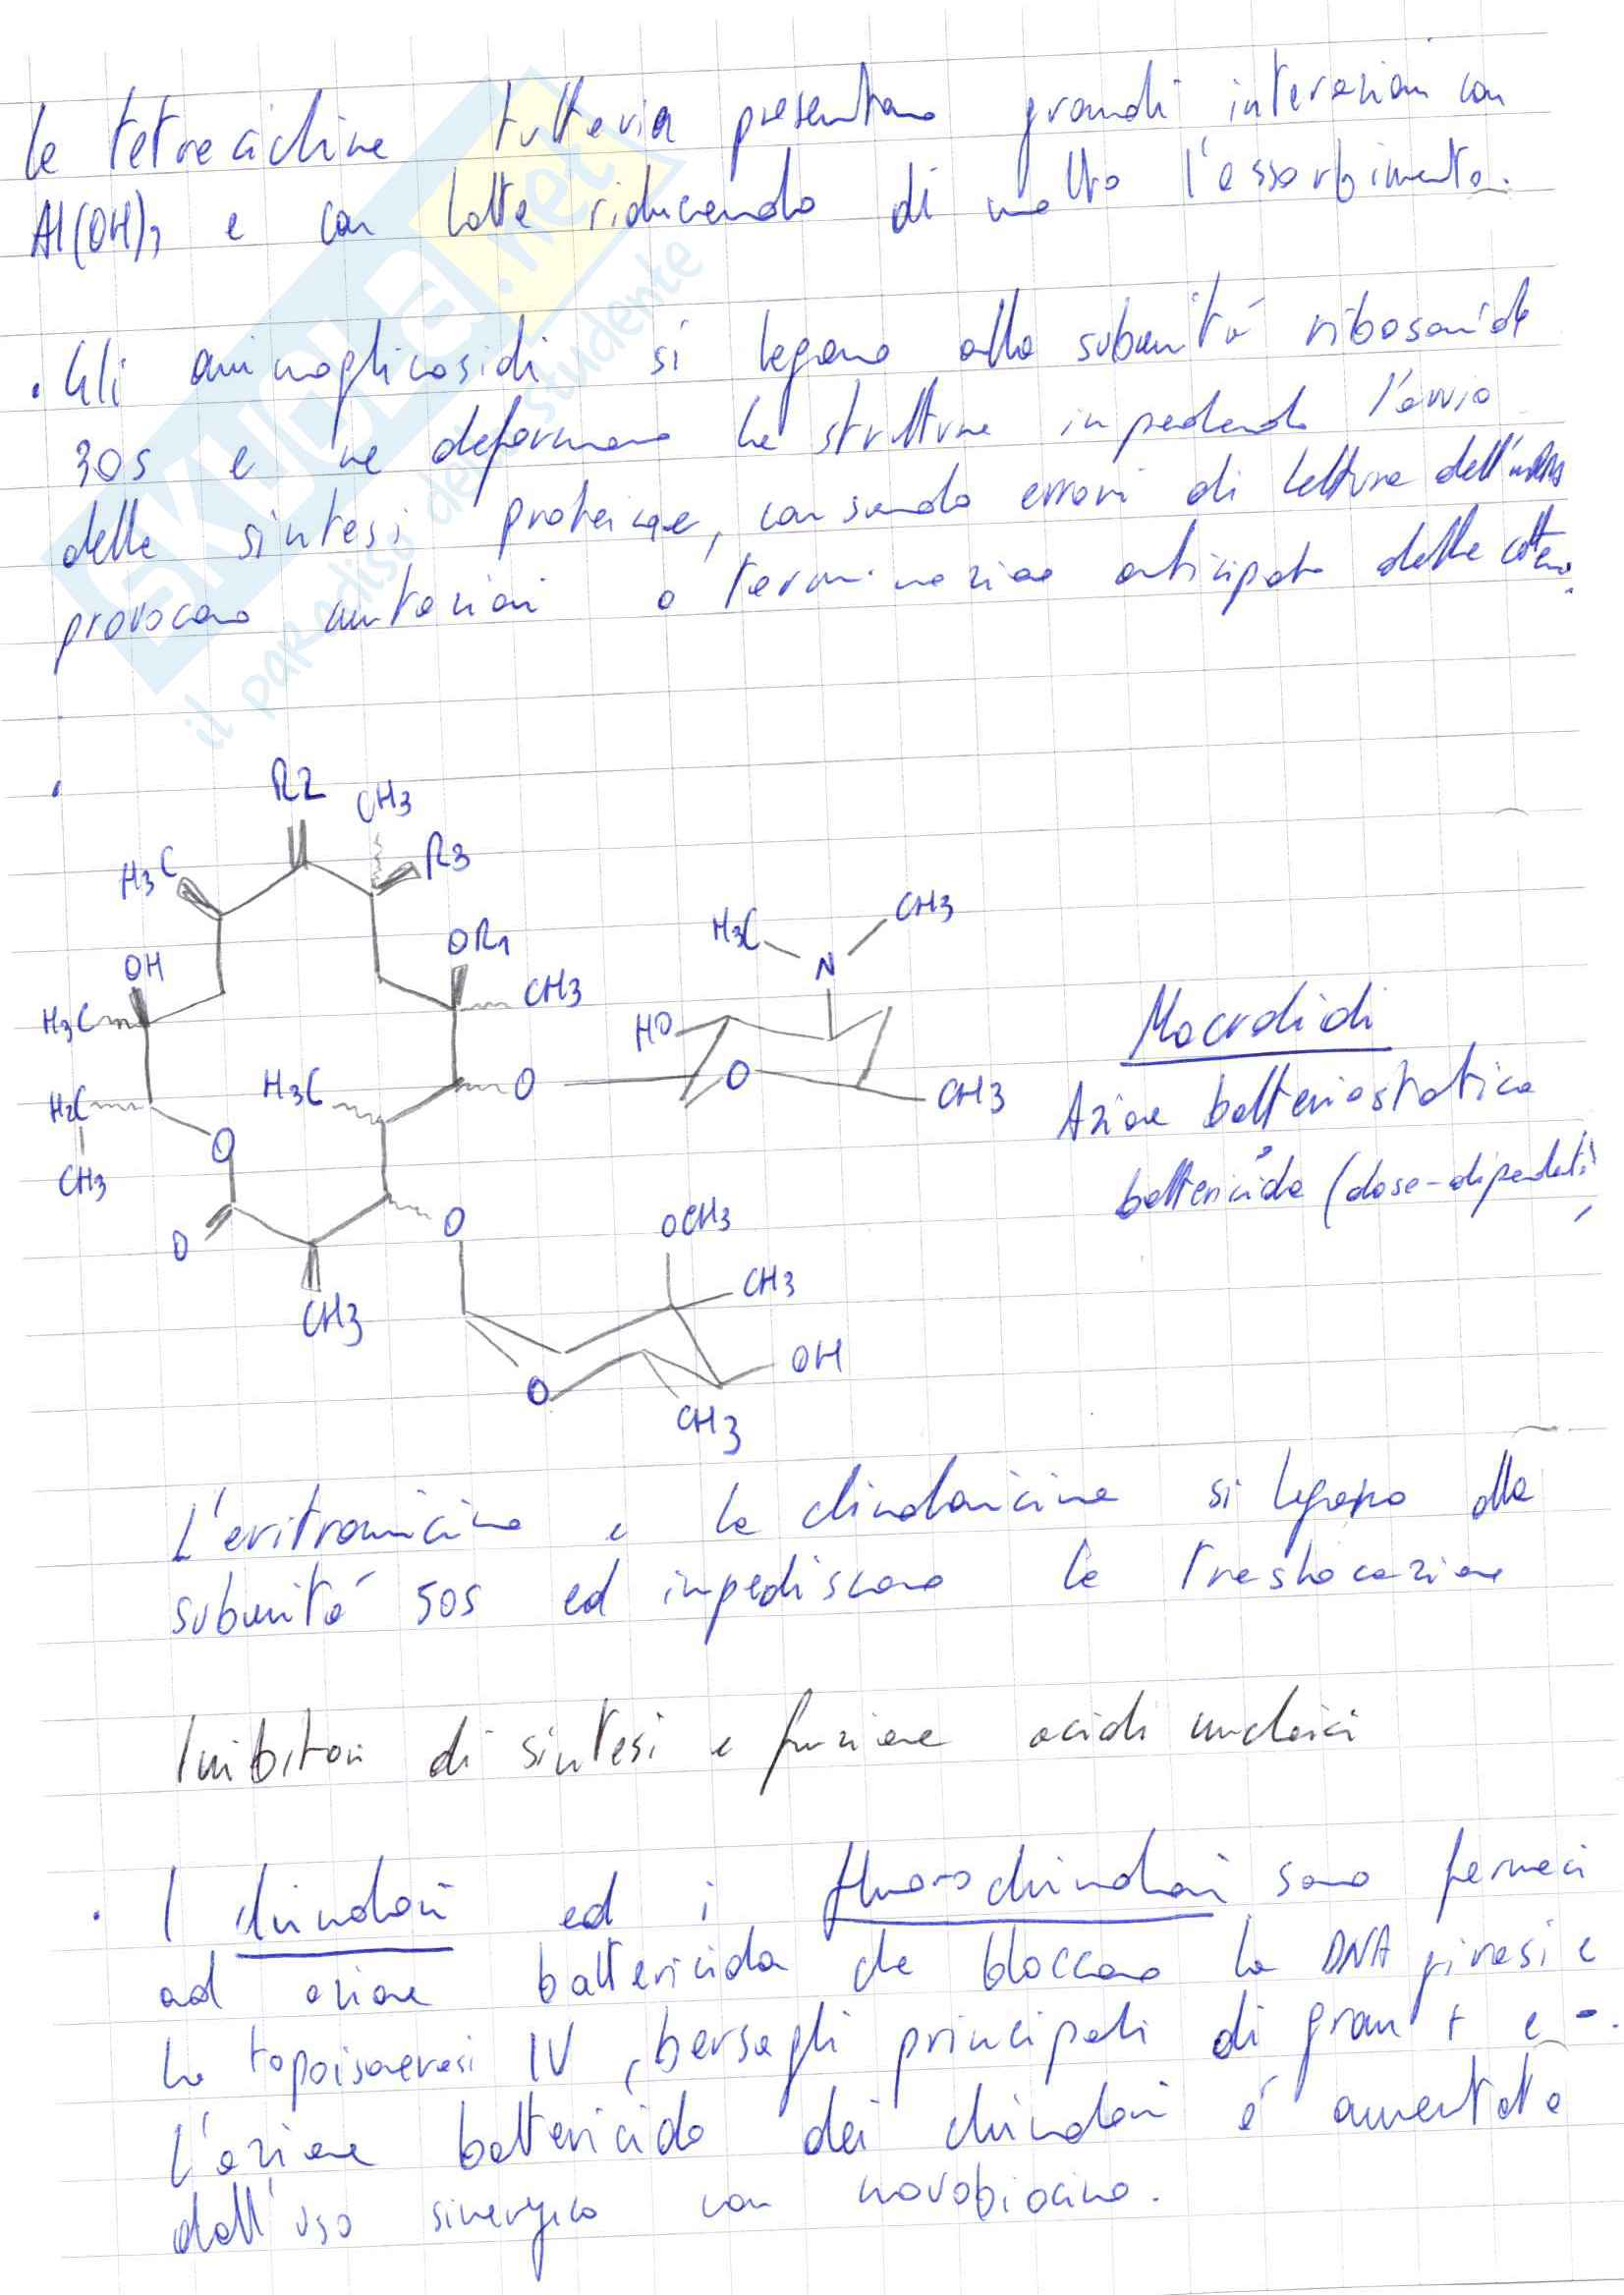 Le tetracicline tuttavia presentano grandi interazioni con
Al(OH)3 e con latte riducendo di molto l'assorbimento.
• Gli aminoglicosidi si legano alla subunità ribosomiale
30S e ne deformano la struttura impedendo l'avvio
della sintesi proteica, causando errori di lettura dell'mRNA
provocano mutazioni o terminazione anticipata della catena.
R2
CH3
H3C
R3
OH
OR1
H3C
CH3
H3C
O
H2C
CH3
O
O
CH3
O
H3C
CH3
N
HO
O
CH3
OCH3
CH3
OH
O
CH3
Macrolidi
Azione batteriostatica
battericida (dose-dipendenti)
L'eritromicina e la clindamicina si legano alla
subunità 50S ed impediscono la traslocazione
Inibitori di sintesi e funzione acidi nucleici
• I chinoloni ed i fluorochinoloni sono farmaci
ad azione battericida che bloccano la DNA girasi e
la topoisomerasi IV, bersagli principali di gram + e -.
L'azione battericida dei chinoloni é aumentata
dall'uso sinergico con novobiocina.
SKUOLA.net
il paradiso dello studente